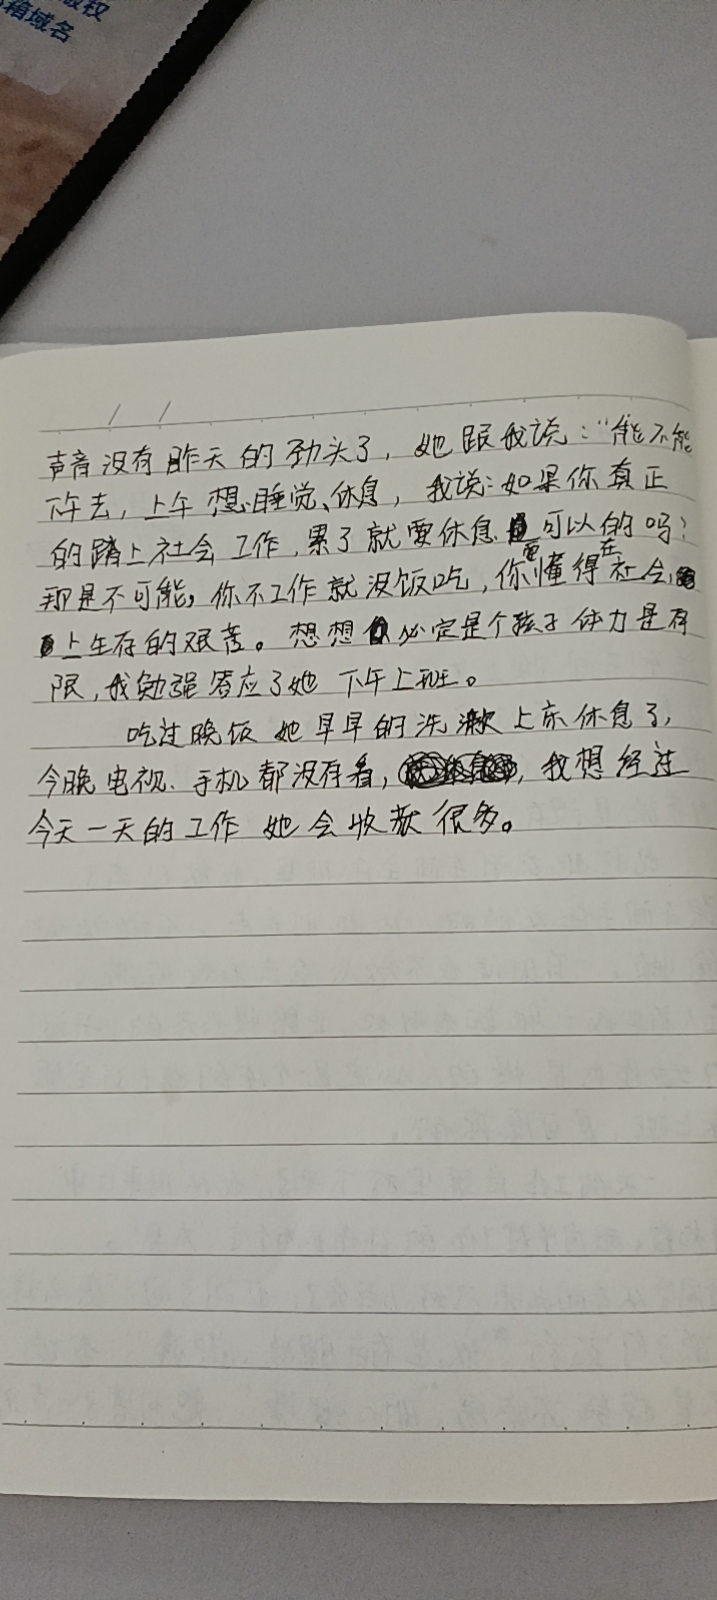 版权
箱域名
声音没有昨天的劲头了，她跟我说：“能不能
下午去，上午想睡觉、休息，我说：如果你真正
的踏上社会工作，累了就要休息可以的吗？
那是不可能，你不工作就没饭吃，你要懂得在社会
上生存的艰苦。想想必定是个孩子体力是有
限，我勉强答应了她下午上班。
吃过晚饭她早早的洗漱上床休息了，
今晚电视、手机都没有看，，我想经过
今天一天的工作她会收获很多。